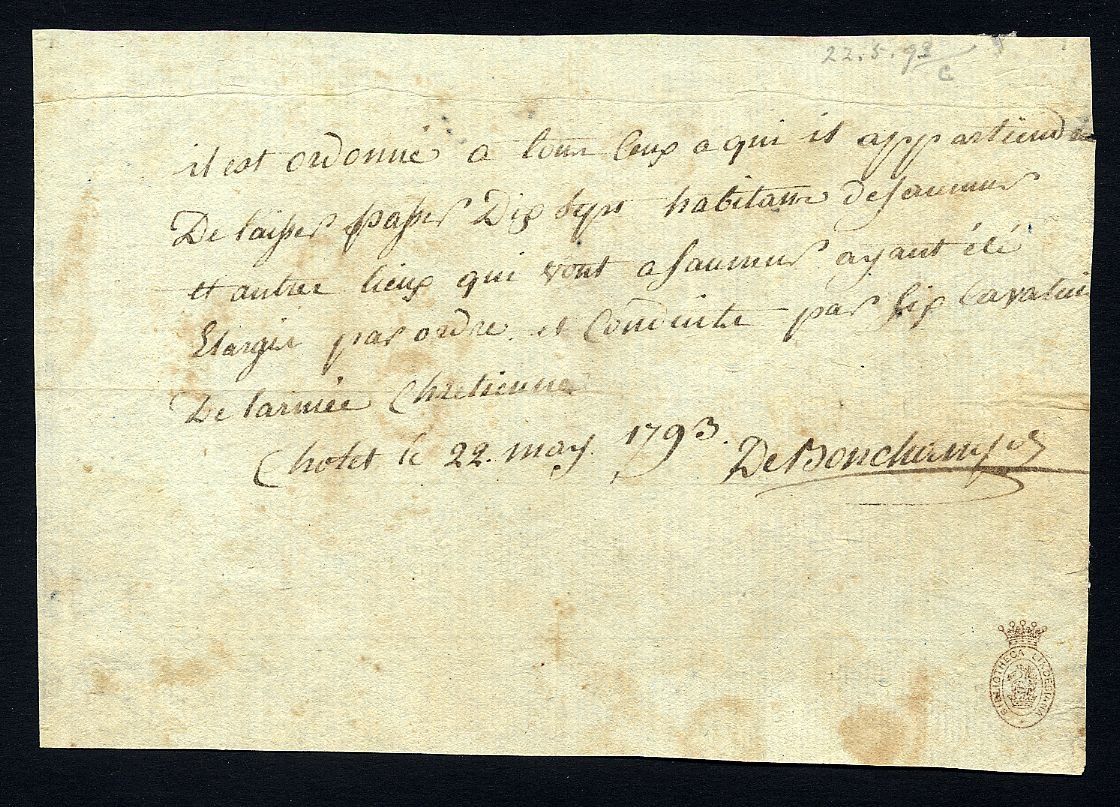 22.5.93
C
il est ordonné a tous ceux a qui il appartiendra
De laisser passer Dix sept habitans de saumur
et autres lieux qui vont a saumur ayant été
Elargis par ordre et conduits par six cavaliers
De l'armée Chretienne
Cholet le 22. may. 1793. De Bonchamps
BIBLIOTHECA LINDESIANA